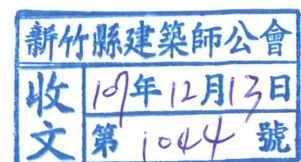 新竹縣建築師公會
收文
107年12月13日
第1044號